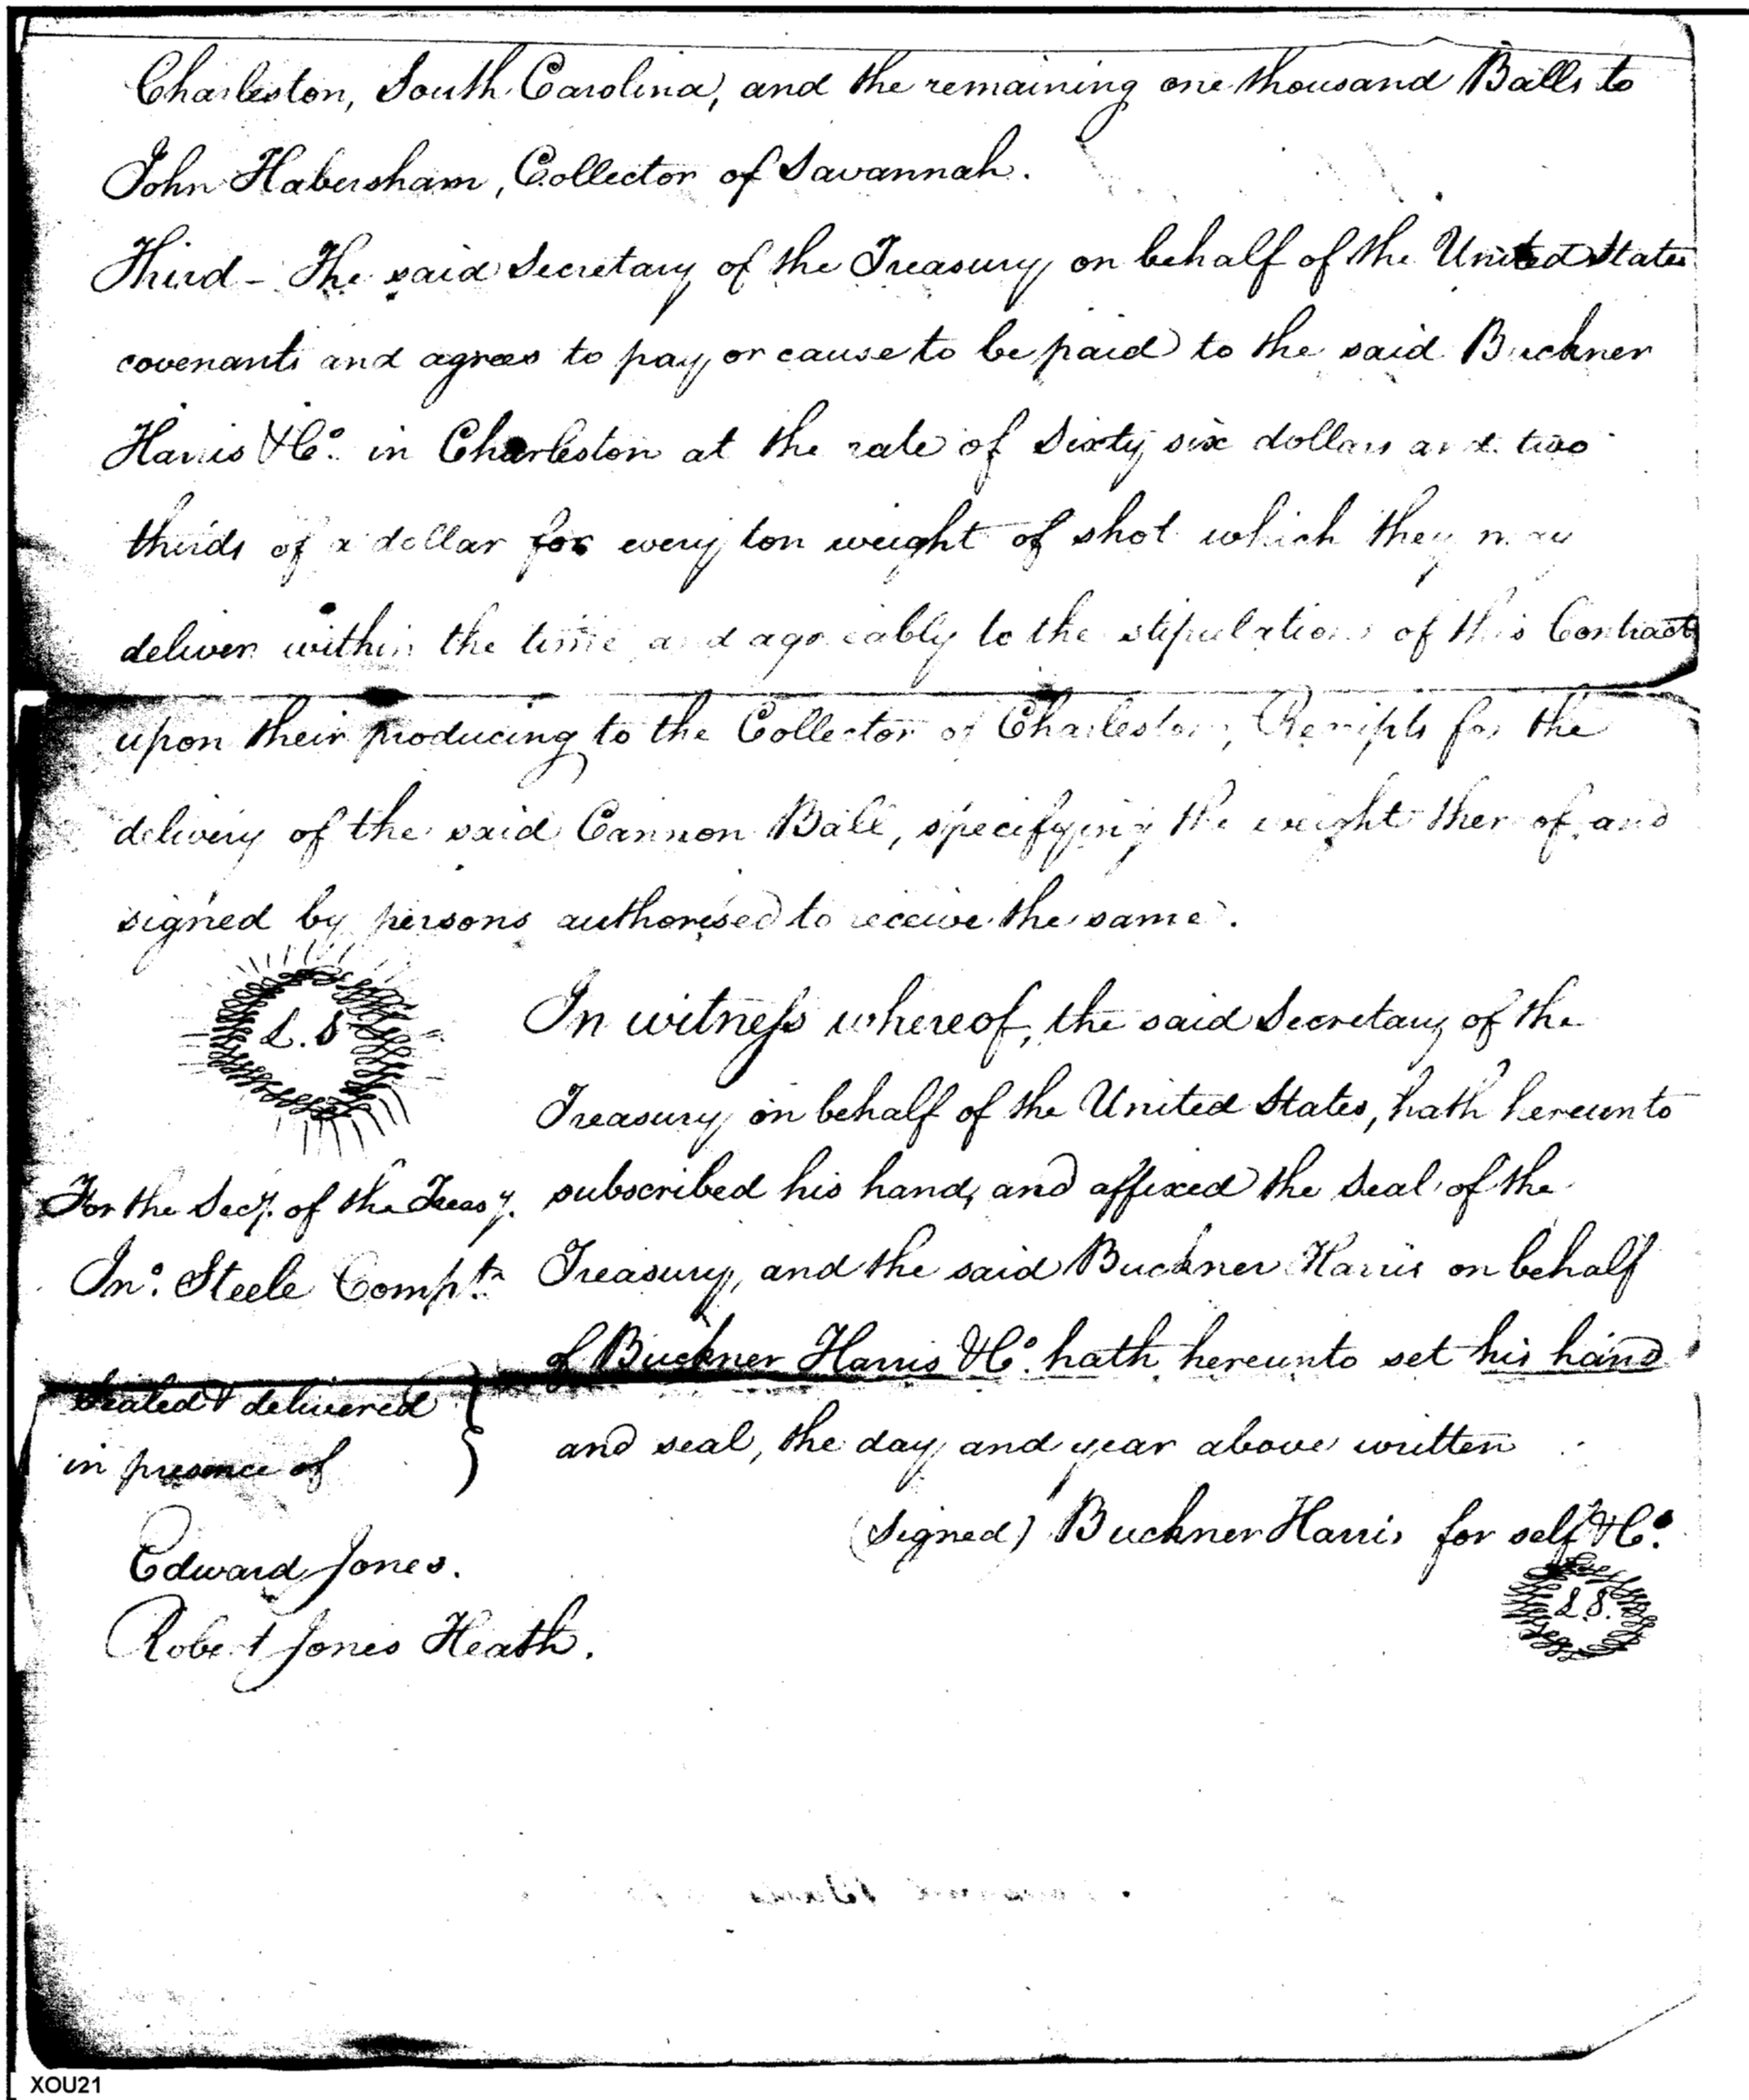 Charleston, South Carolina, and the remaining one thousand Balls to
John Habersham, Collector of Savannah.
Third - The said Secretary of the Treasury on behalf of the United States
covenants and agrees to pay or cause to be paid to the said Buckner
Harris & Co. in Charleston at the rate of Sixty six dollars and two
thirds of a dollar for every ton weight of shot which they may
deliver within the time and agreeably to the stipulations of this Contract
upon their producing to the Collector of Charleston, Receipts for the
delivery of the said Cannon Ball, specifying the weight thereof, and
signed by persons authorised to receive the same.
L.S
In witness whereof, the said Secretary of the
Treasury on behalf of the United States, hath hereunto
subscribed his hand, and affixed the Seal of the
Treasury, and the said Buckner Harris on behalf
of Buckner Harris & Co. hath hereunto set his hand
and seal, the day and year above written
For the Secy. of the Treasy.
Jno. Steele Comptr.
Sealed & delivered
in presence of
Edward Jones.
Robert Jones Heath.
(Signed) Buckner Harris for self & Co.
L.S.
XOU21